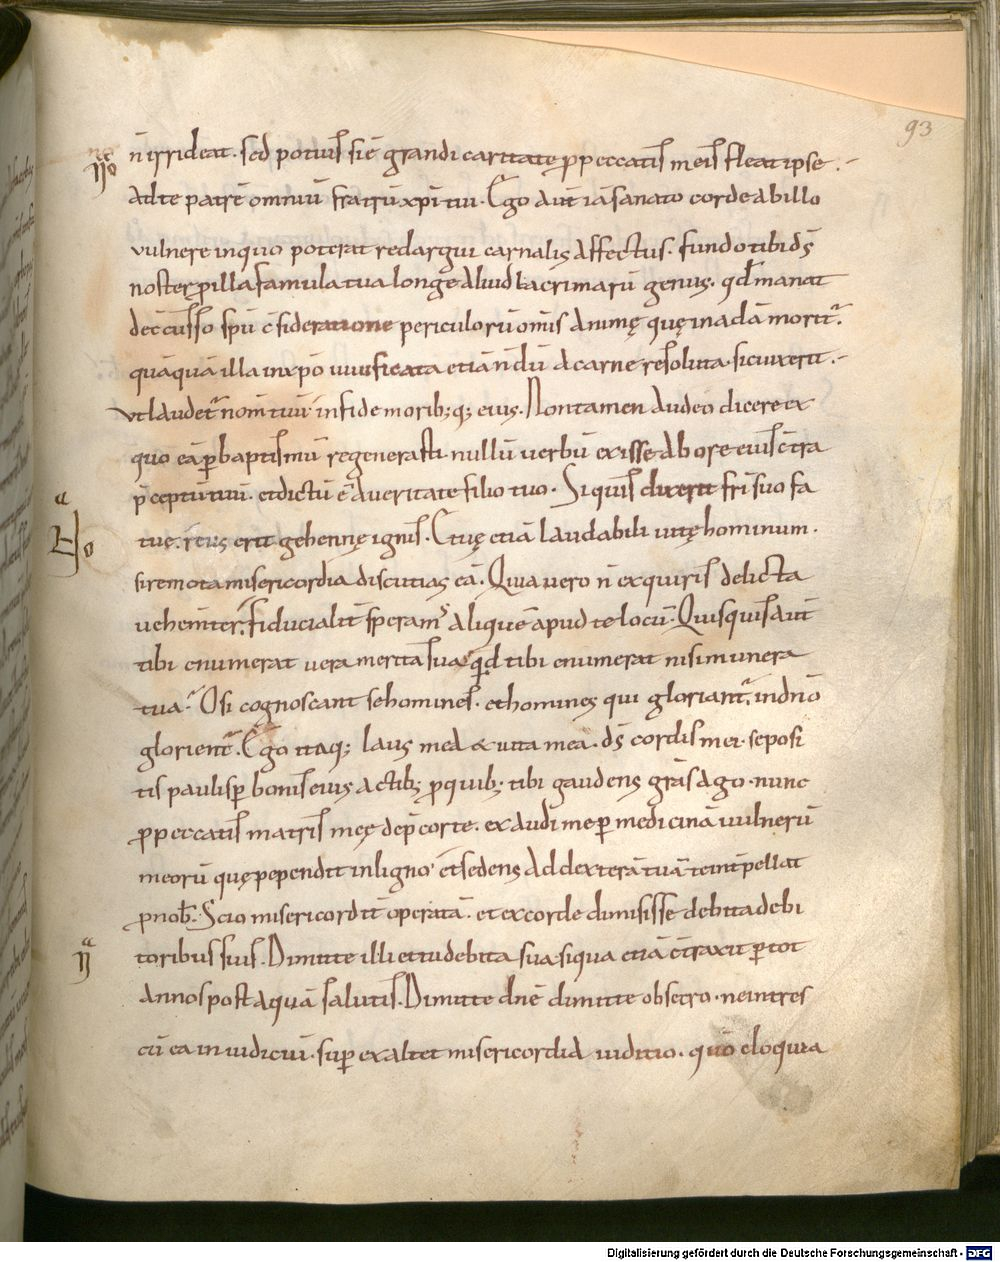 93
n̄ irrideat. sed potius si ē grandi caritate ꝓ peccatis meis fleat ipse.
ad te patrē omniū fratrū xp̄i tui. Ego aut̄ iā sanato corde ab illo
vulnere in quo poterat redargui carnalis affectus. fundo tibi d̄s
noster ꝓ illa famula tua longe aliud lacrimarū genus. qd̄ manat
de c̄cusso sp̄u c̄sideratione periculorū om̄is animę quę in adā morit᷑.
quāquā illa in xp̄o vivificata etiā nōdū a carne resoluta. sic vixerit.
vt laudet᷑ nom̄ tuū in fide morib; q; eius. Non tamen audeo dicere ex
quo eā ꝑ baptismū regenerasti. nullū verbū exisse ab ore eius c̄tra
p̄ceptū tuū. et dictū ē a veritate filio tuo. Si quis dixerit fr̄i suo fa
tuę. reus erit gehennę ignis. Et vę etiā laudabili vitę hominum.
si remota misericordia discutias eā. Quia vero n̄ exquiris delicta
vehem̄ter. fiducialit̄ speram᷒ aliquē apud te locū. Quisquis aut̄
tibi enumerat vera merita sua. qd̄ tibi enumerat nisi munera
tua. O si cognoscant se homines. et homines qui gloriant᷑. in dn̄o
glorient᷑. Ego itaq; laus mea & vita mea. d̄s cordis mei. seposi
tis paulisꝑ bonis eius actib; ꝓ quib; tibi gaudens grās ago. nunc
ꝓ peccatis matris meę dep̄cor te. exaudi me ꝑ medicinā vulnerū
meorū quę pependit in ligno. et sedens ad dexterā tuā te int̄pellat
ꝓ nob̄. Scio misericordit̄ operatā. et ex corde dimisisse debita debi
toribus suis. Dimitte illi et tu debita sua. si qua etiā c̄traxit ꝑ tot
annos post aquā salutis. Dimitte dn̄e dimitte obsecro. ne intres
cū ea in iudiciū. suꝑexaltet misericordia iuditio. quō eloquia
Digitalisierung gefördert durch die Deutsche Forschungsgemeinschaft - DFG